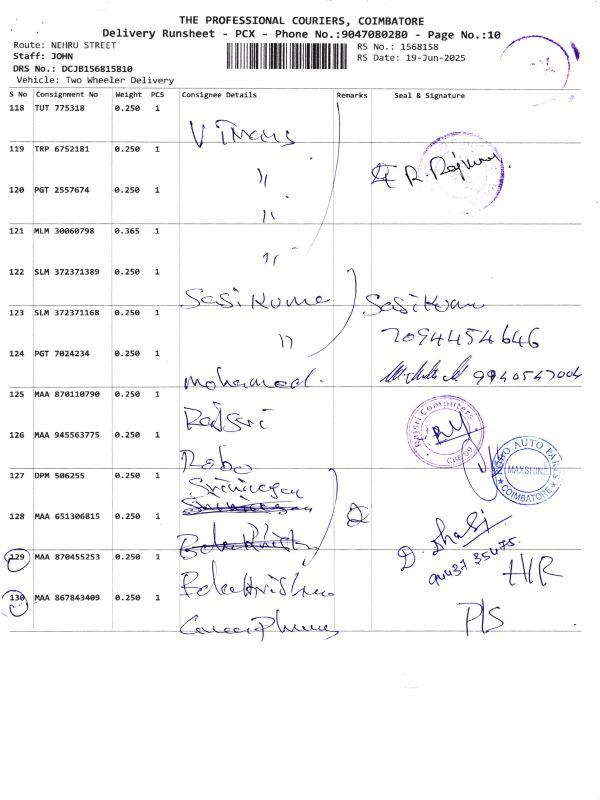 THE PROFESSIONAL COURIERS, COIMBATORE
Delivery Runsheet - PCX - Phone No.:9047080280 - Page No.:10
Route: NEHRU STREET
RS No.: 1568158
Staff: JOHN
RS Date: 19-Jun-2025
DRS No.: DCJB156815810
Vehicle: Two Wheeler Delivery
S No Consignment No Weight PCS Consignee Details Remarks Seal & Signature
118 TUT 775318 0.250 1
119 TRP 6752181 0.250 1
R. Rajkumar
120 PGT 2557674 0.250 1
121 MLM 30060798 0.365 1
122 SLM 372371389 0.250 1
Sasikumar Sasikumar
123 SLM 372371168 0.250 1
7094454646
124 PGT 7024234 0.250 1
Mohamood. 9940547004
125 MAA 870110790 0.250 1
Rajsri
Rajsri Computers
126 MAA 945563775 0.250 1
Robo
ROBO AUTO PARTS
MAXSHINE
COIMBATORE
127 DPM 506255 0.250 1
Srinivasan
128 MAA 651306815 0.250 1
Balakrishnan
D. Shasi
94437 35475.
129 MAA 870455253 0.250 1
H/R
Balakrishnan
130 MAA 867843409 0.250 1
P/S